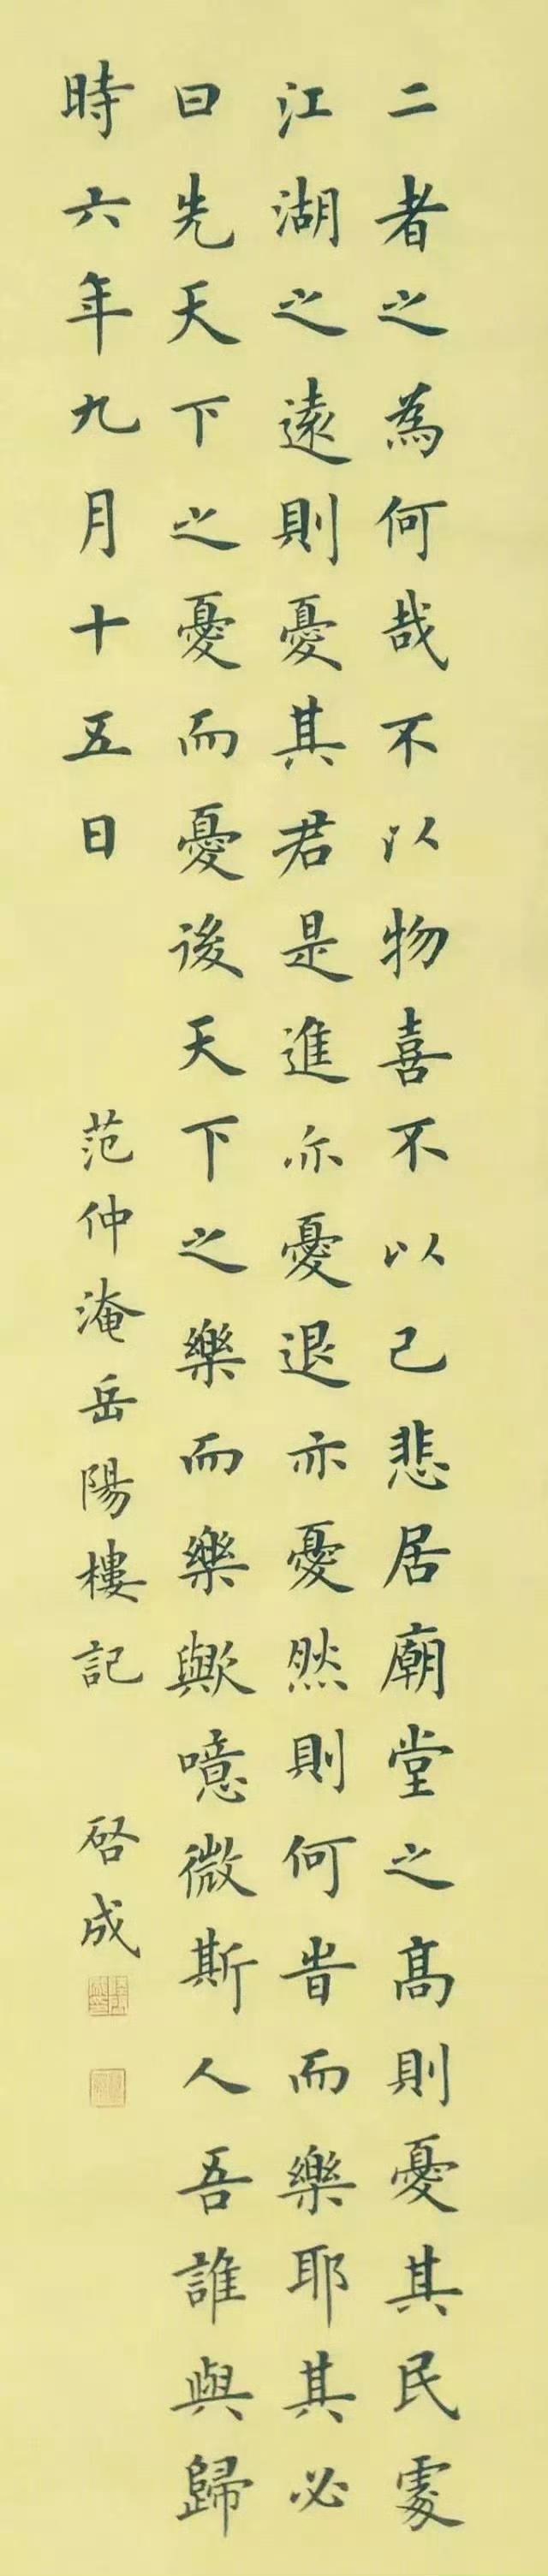 二者之為何哉不以物喜不以己悲居廟堂之高則憂其民處
江湖之遠則憂其君是進亦憂退亦憂然則何時而樂耶其必
曰先天下之憂而憂後天下之樂而樂歟噫微斯人吾誰與歸
時六年九月十五日
范仲淹岳陽樓記
啓成